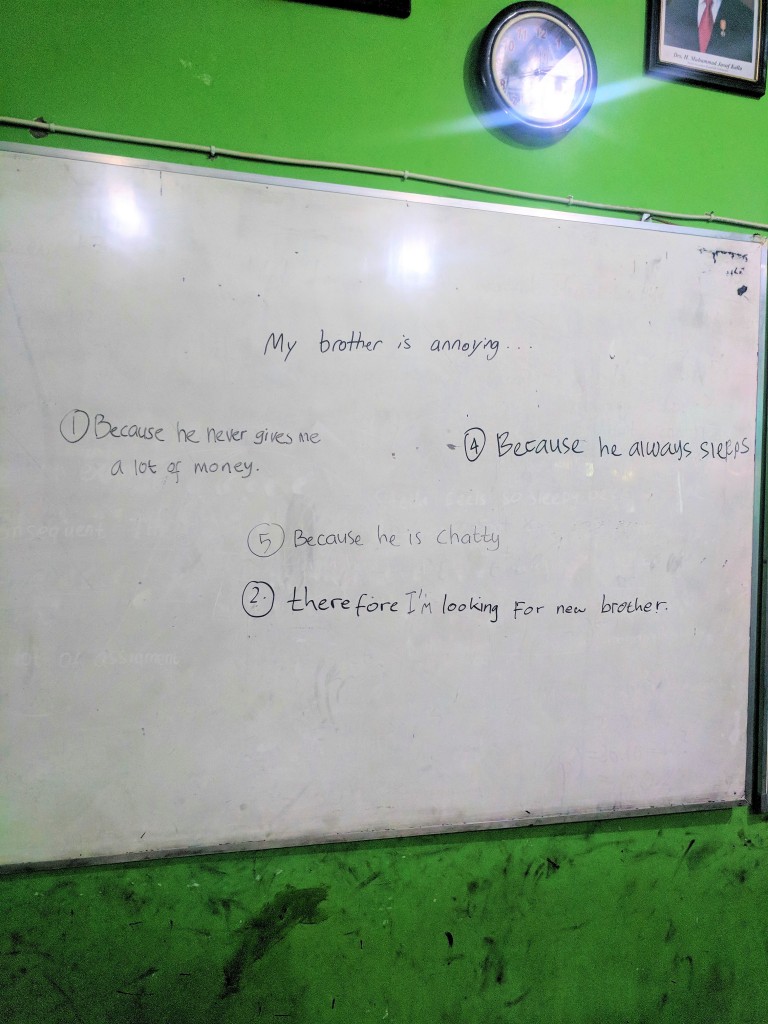 Drs. H. Muhammad Jusuf Kalla
My brother is annoying...
① Because he never gives me
a lot of money.
④ Because he always sleeps
⑤ Because he is chatty
② therefore I'm looking for new brother.